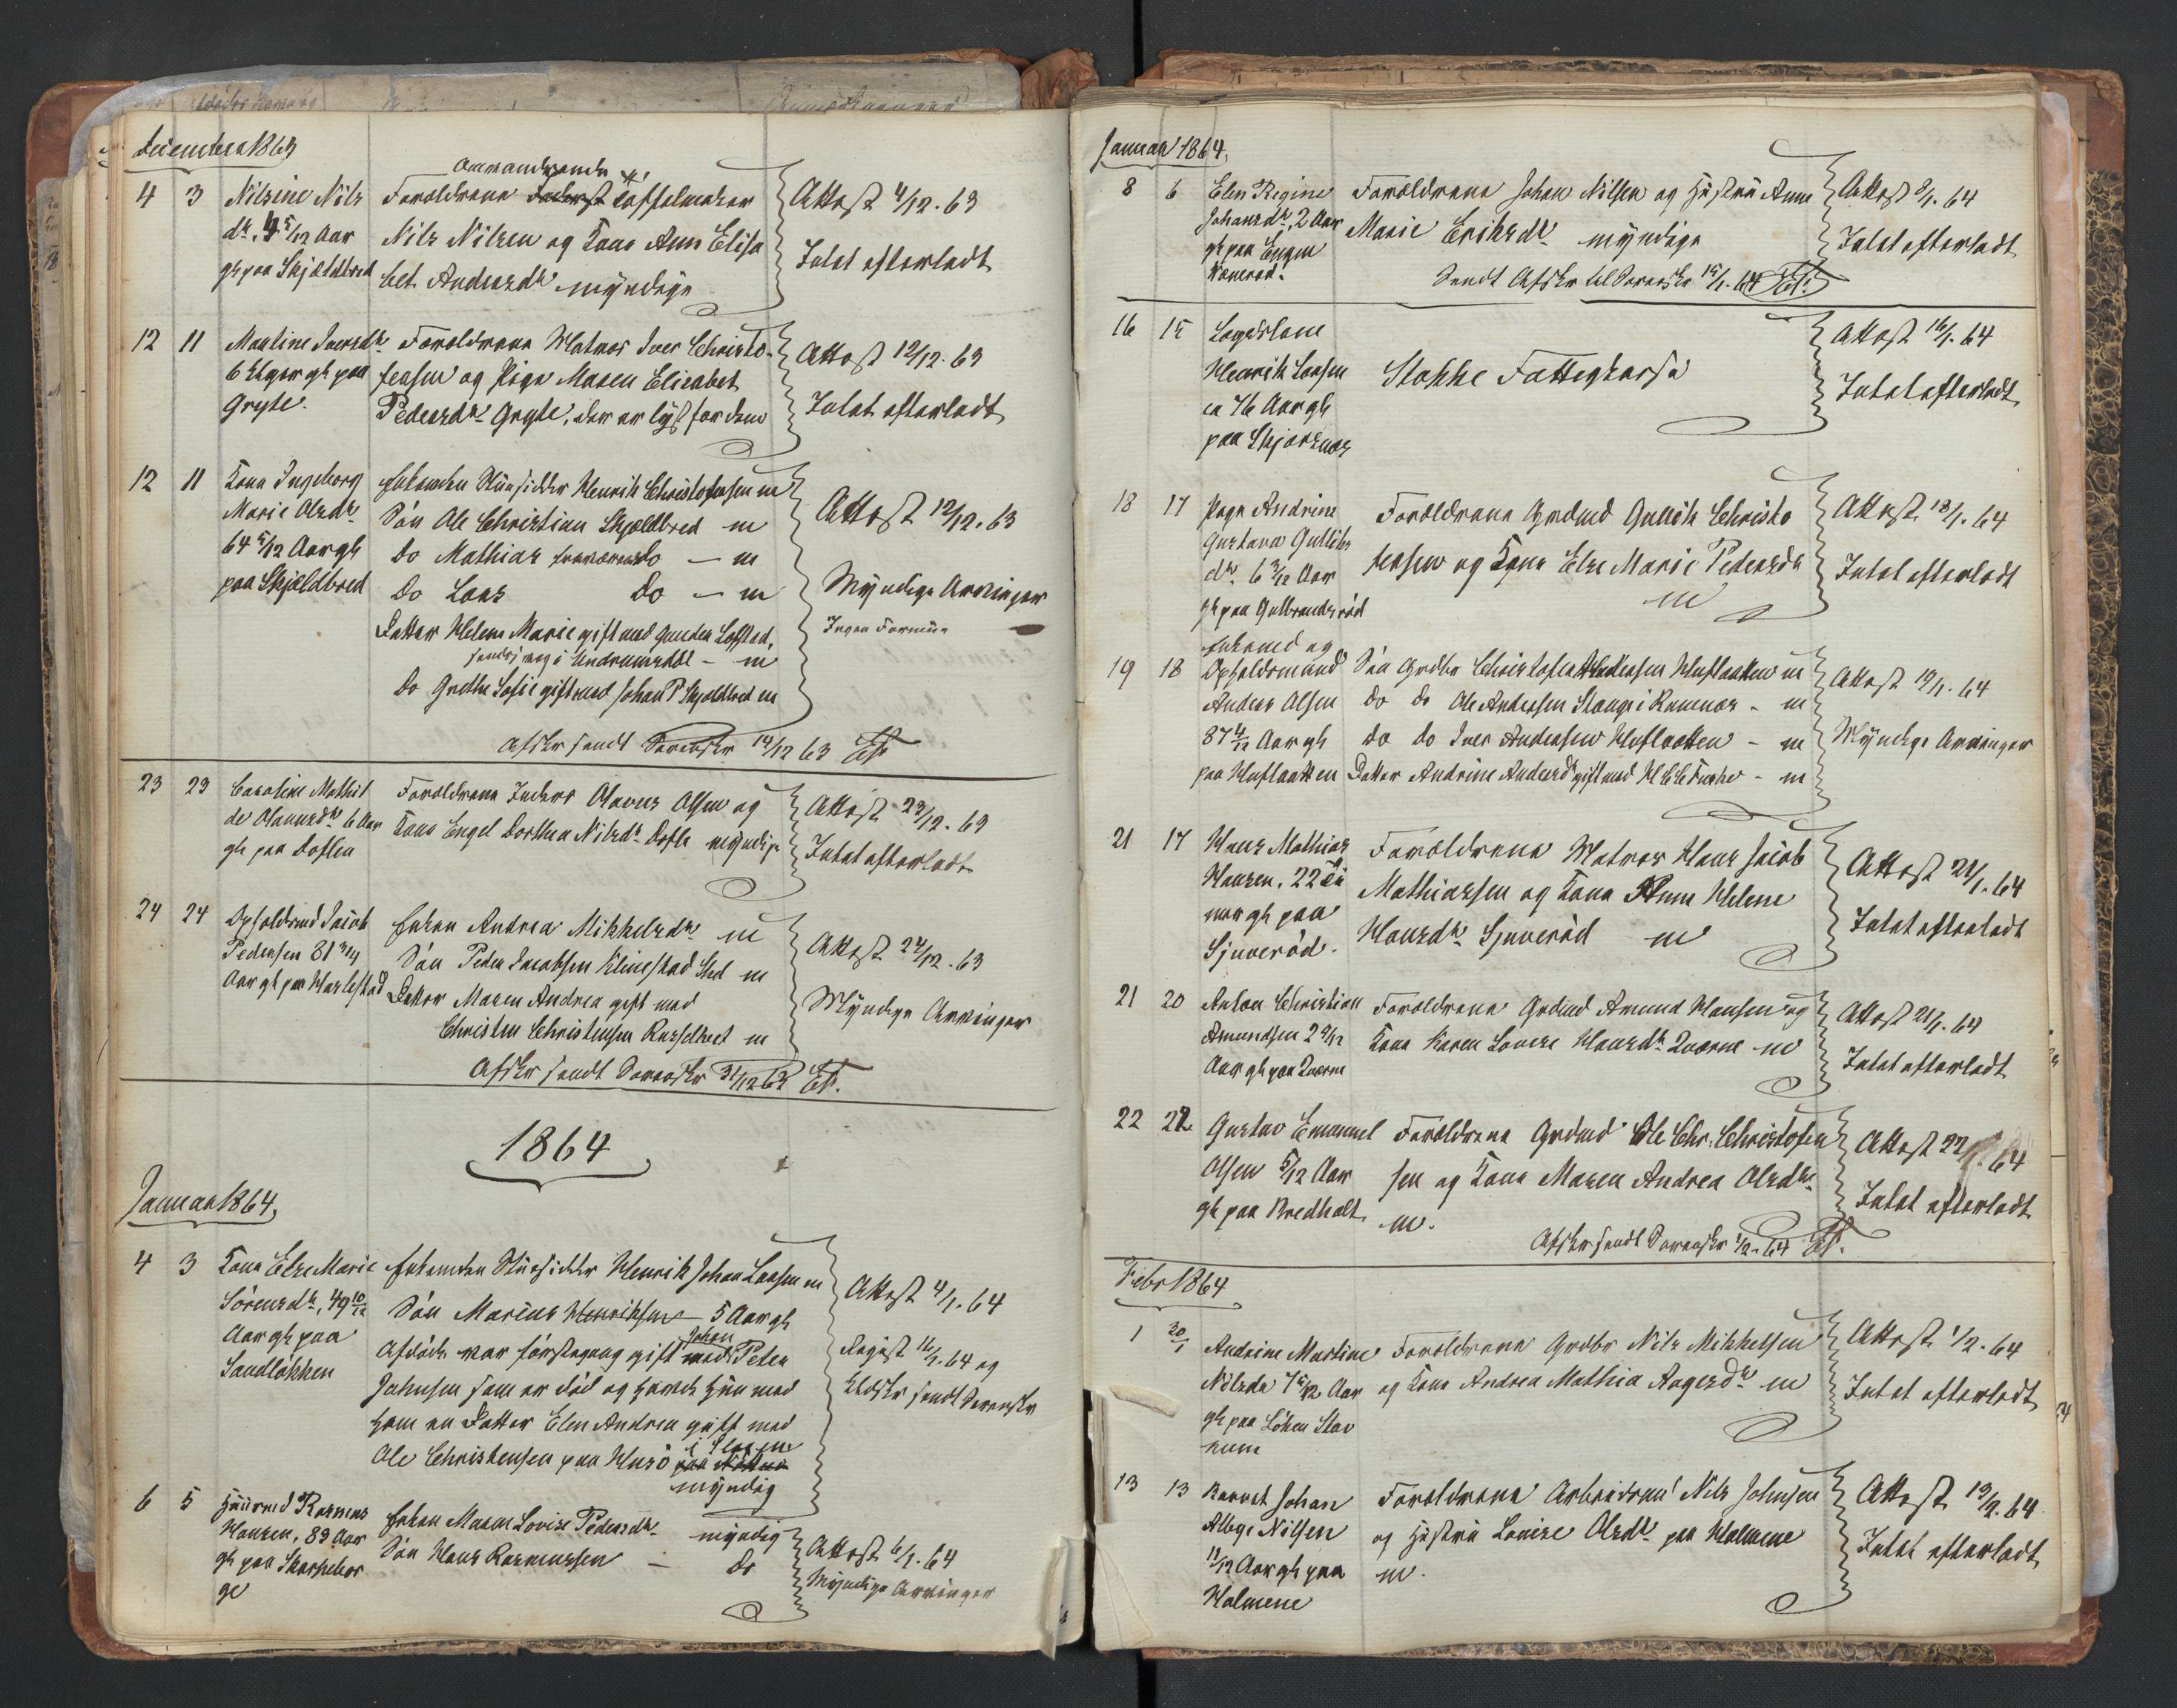 December 1863
4 3 Nilsine Nils Forældrene Inderst Toffelmaker Attest 4/12. 63
Ommandrende
dr. 4 5/12 Aar Nils Nilsen og Kone Anne Elisa
gl paa Skjældbred bet Andersdr myndige Intet efterladt
12 11 Martine Iversdr Forældrene Matros Iver Christo- Attest 12/12. 63
6 Uger gl paa fersen og Pige Maren Elisabet
Gryte. Pedersdr Gryte, der er lyst for dem Intet efterladt
12 11 Kone Ingeborg Enkemden Huusidder Henrik Christofersen m
Marie Olsdr Søn Ole Christian Skjældbred m Attest 12/12. 63
64 5/12 Aar gl Do Mathias fraværende Do — m
paa Skjældbred Do Lars Do — m Myndige Arvinger
Datter Helene Marie gift med Gunder Lofstad, Ingen Formue
Sandsjveg i Undrumsdal – m
Do Grethe Sofie gift med Johan P Skjældbred m
Afskr sendt Sorenskr 14/12 63
23 23 Caroline Mathil Forældrene Inderst Olavus Olsen og Attest 23/12. 63
de Olavusdr 6 Aar Kone Engel Dorthea Nilsdr Doflen myndige
gl paa Doflen Intet efterladt
24 24 Opholdsmd Jacob Enken Andrea Mikkelsdr m Attest 24/12. 63
Pedersen 81 Søn Peder Jacobsen Klinestad Sed m
Aar gl paa Harlestad Datter Maren Andrea gift med Myndige Arvinger
Christen Christensen Rosselbvet m
Afskr sendt Sorenskr 31/12 63
1864
Januar 1864.
4 3 Kone Else Marie Enkemden Huusidder Henrik Johan Larsen m Attest 4/1. 64
Sørensdr, 49 10/12 Søn Marius Henriksen – 5 Aar gl
Aar gl paa Afdøde var førstegang gift med Johan Peter Regist 16/1. 64 og
Sandløkken Johnsen som er død og havde hun med Udskr sendt Sorenskr
ham en Datter Elen Andrea gift med
Ole Christensen paa Husø i Slagen
myndig
6 5 Huusmd Rasmus Enken Maren Lovise Pedersdr myndig Attest 6/1. 64
Hansen, 83 Aar Søn Hans Rasmussen – Do
gl paa Skarpebor Myndige Arvinger
ge
Januar 1864.
8 6 Elen Regine Forældrene Johan Nilsen og Hustru Anne Attest 8/1. 64
Johansdr, 2 Aar Marie Eriksdr myndige
gl paa Engen Intet efterladt
Sendt Afskr til Sorenskr 15/1. 64
16 15 Legdslem Attest 16/1. 64
Henrik Larsen Stokke Fattigkasse
ca 76 Aar gl Intet efterladt
paa Skjærsnæs
18 17 Pige Andrine Forældrene Grdmd Gullik Christo Attest 18/1. 64
Gustava Gulliks
dr 6 3/12 Aar fersen og Kone Else Marie Pedersdr Intet efterladt
gl paa Gulbrandsrød m
19 18 Enkemd og
Opholdsmand Søn Grdbr Christofer Andersen Huflaatten m Attest 19/1. 64
Anders Olsen Do Do Ole Andersen Stange i Ramnæs – m
87 4/12 Aar gl Do Do Iver Andersen Huflaatten – m Myndige Arvinger
paa Huflaatten Datter Andrine Andersdr gift med H C C – m
21 17 Hans Mathias Forældrene Matros Hans Jacob Attest 21/1. 64
Hansen. 22 Ti Mathiassen og Kone Anne Helene
mer gl paa Hansdr Sjuverød m Intet efterladt
Sjuverød.
21 20 Anton Christian Forældrene Grdmd Amund Hansen og Attest 21/1. 64
Amundsen 2 9/12 Kone Karen Lovise Hansdr Qværne m
Aar gl paa Qværne Intet efterladt
22 22 Gustav Emanuel Forældrene Grdmd Ole Chr. Christofer Attest 22/1. 64
Olsen 5/12 Aar sen og Kone Maren Andrea Olsdr
gl paa Bredholt m. Intet efterladt
Afskr sendt Sorenskr 1/2. 64
Febr 1864
1 30/1 Andrine Martine Forældrene Grdbr Nils Mikkelsen Attest 1/2. 64
Nilsdr 7 Aar og Kone Andrea Mathia Aagesdr m Intet efterladt
gl paa Løken Stav
num
13 13 Barnet Johan Forældrene Arbeidsmd Nils Johnsen Attest 13/2. 64
Albge Nilsen og Hustru Lovise Olsdr paa Holmene
11/12 Aar gl paa m. Intet efterladt
Holmene